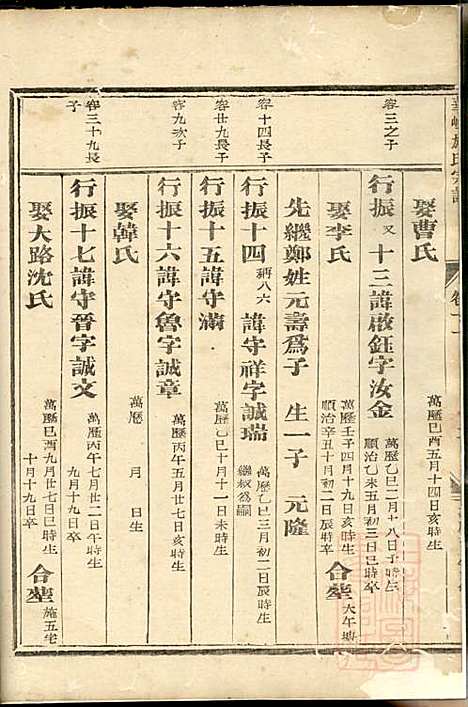 施氏宗譜
娶曹氏 萬歷己酉五月十四日亥時生
容三之子
行振又十三諱啟鈺字汝金 萬歷乙巳二月十八日子時生 順治乙未五月初三日巳時卒
娶李氏 萬歷壬子四月十九日亥時生 順治辛丑十月初二日辰時卒 合塟 大午塘
先繼鄭姓元壽為子 生一子 元隆
容十四長子
行振十四 祠八六 諱守祥字誠瑞 萬歷乙巳三月初二日辰時生 繼叔為嗣
容廿九長子
行振十五諱守滿 萬歷乙巳十月十一日未時生
容九次子
行振十六諱守魯字誠章 萬歷丙午五月廿七日亥時生
娶韓氏 萬歷 月 日生
容三十九長子
行振十七諱守晉字誠文 萬歷丙午七月廿二日午時生 九月十九日卒
娶大路沈氏 萬歷己酉九月廿七日巳時生 十月十九日卒 合塟 施五宅